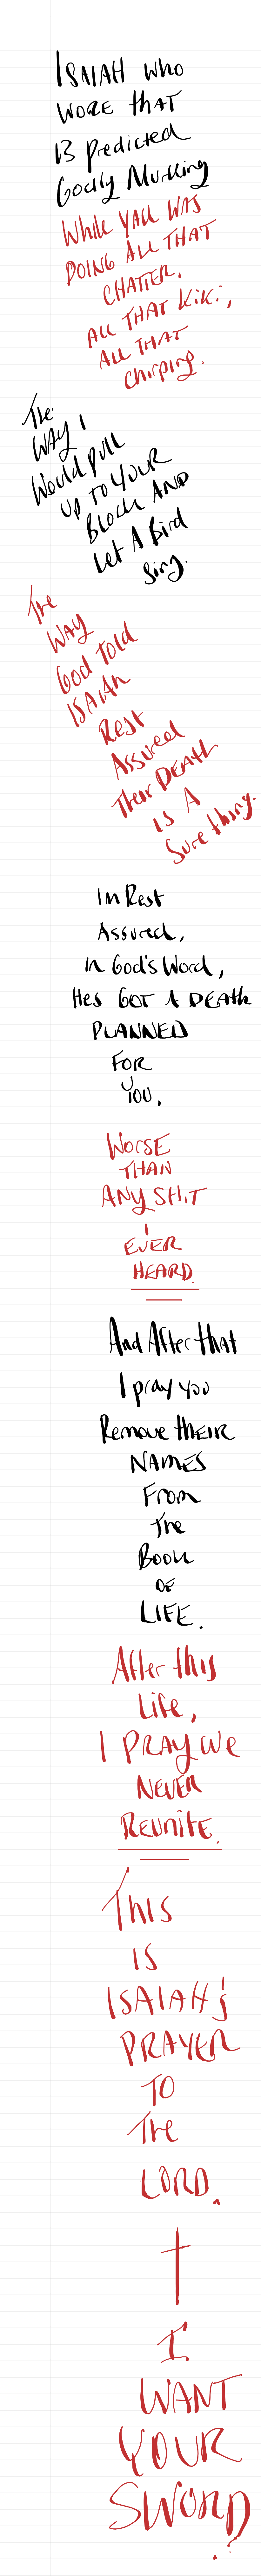 ISAIAH who
WORE that
13 predicted
Godly Murking
While YALL WAS
DOING ALL THAT
CHATTER.
ALL THAT KiKi,
ALL THAT
Chirping.
The
WAY I
Would pull
UP TO YOUR
BLOCK AND
Let A Bird
Sing.
The
WAY
God Told
ISAIAH
Rest
Assured
Their DEATH
IS A
Sure thing.
In Rest
Assured,
In God's Word,
Hes GOT A DEATH
PLANNED
FOR
YOU.
WORSE
THAN
ANY SHIT
I
EVER
HEARD.
And After that
I pray you
Remove THEIR
NAMES
From
The
Book
OF
LIFE.
After this
Life,
I PRAY We
NEVER
Reunite.
THIS
IS
ISAIAH's
PRAYER
TO
The
LORD.
I
WANT
YOUR
SWORD!